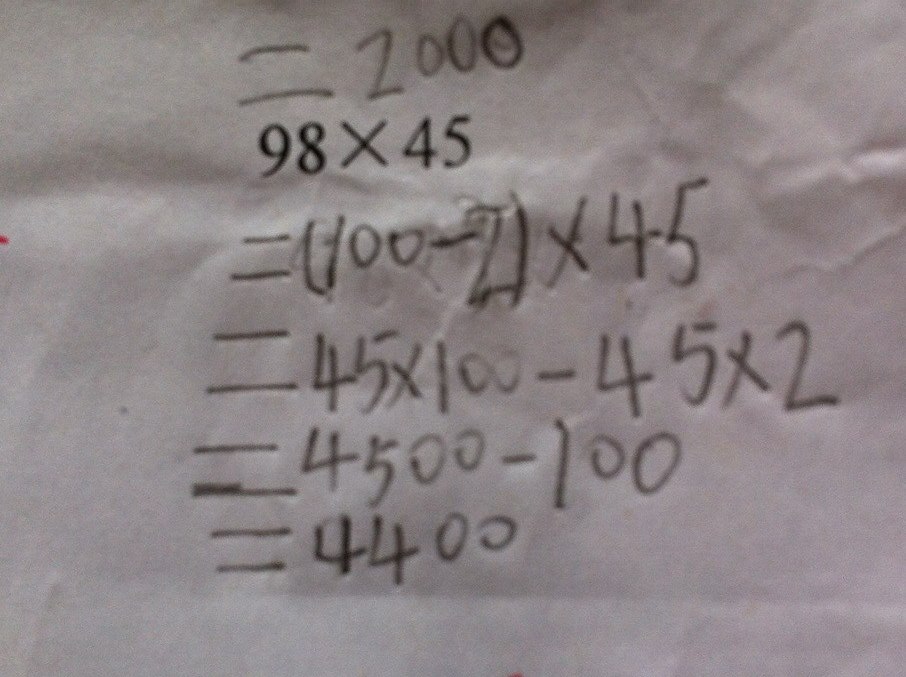 =2000
98×45
=(100-2)×45
=45×100-45×2
=4500-100
=4400